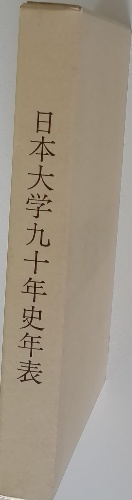 日本大学九十年史年表